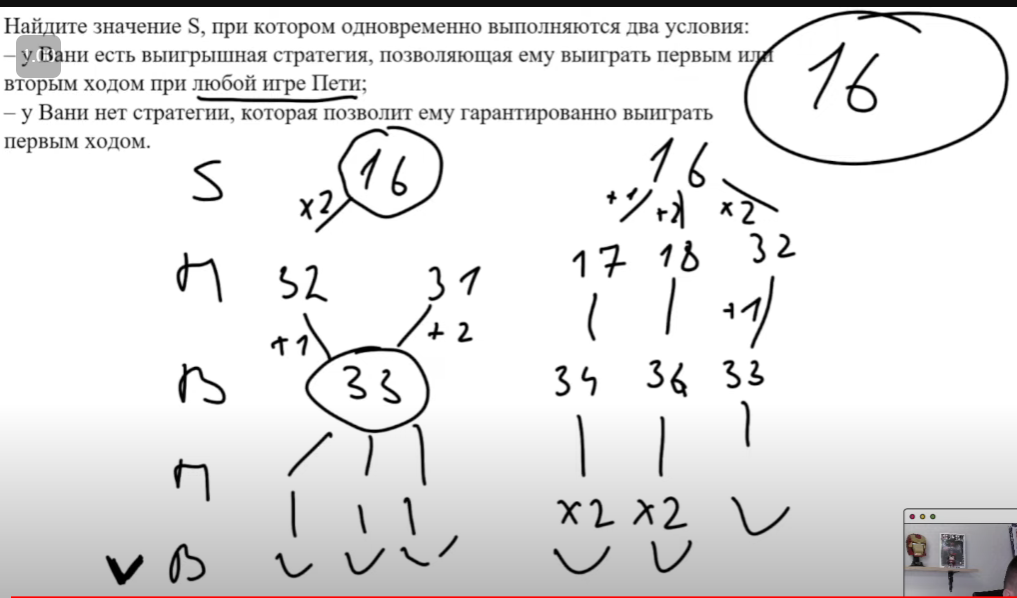 Найдите значение S, при котором одновременно выполняются два условия:
– у Вани есть выигрышная стратегия, позволяющая ему выиграть первым или
вторым ходом при любой игре Пети;
– у Вани нет стратегии, которая позволит ему гарантированно выиграть
первым ходом.
16
S 16 16
x2 +1 +2 x2
П 32 31 17 18 32
+1 +2 +1
В 33 34 36 33
П
x2 x2
В